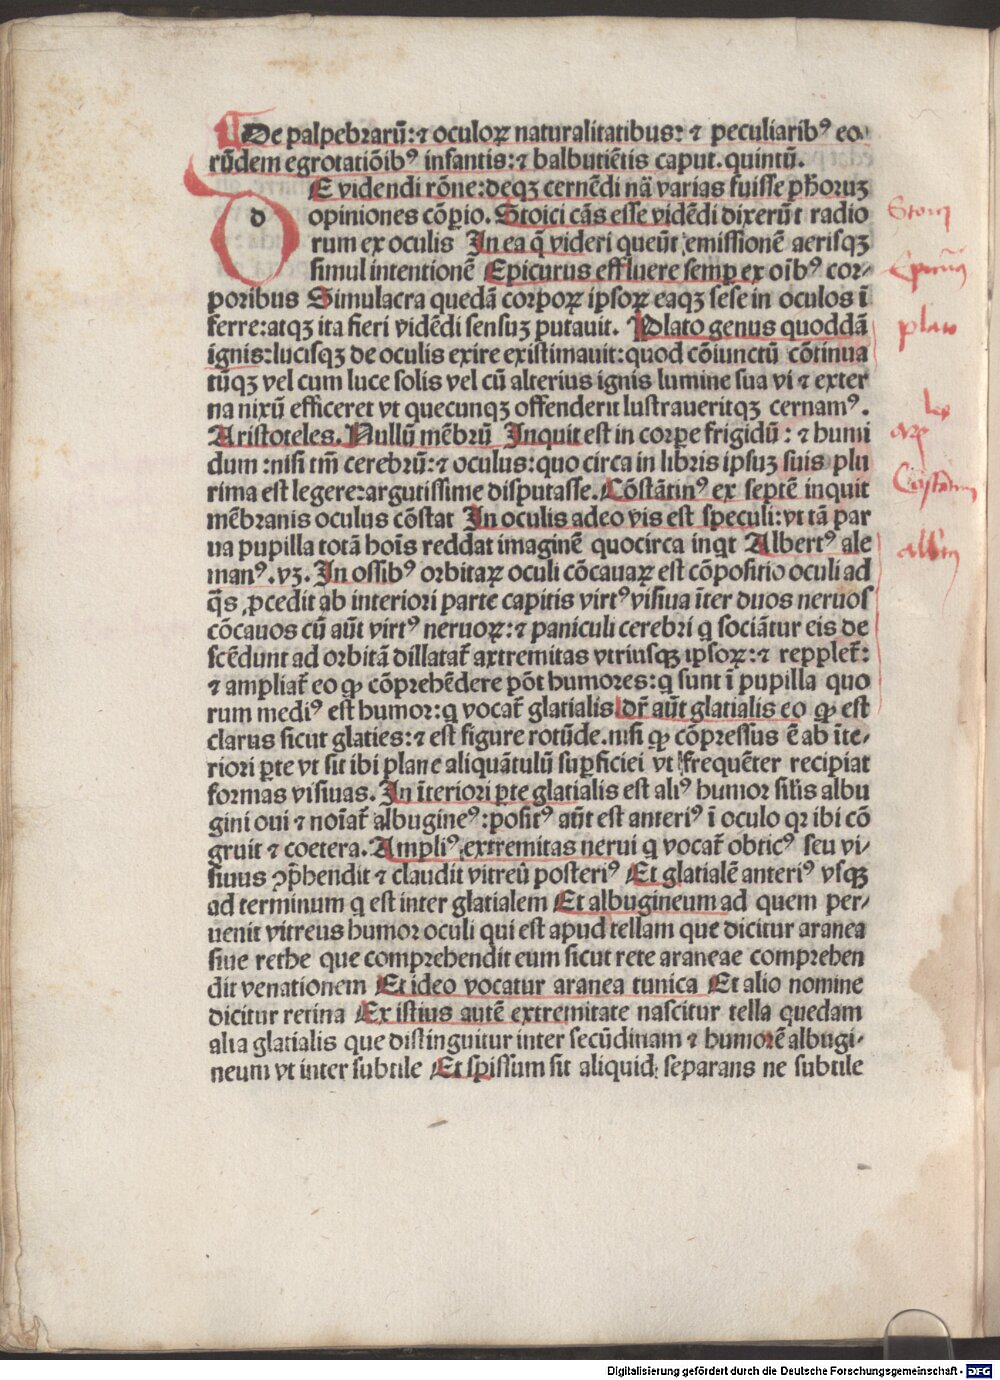 De palpebrarū: ⁊ oculoꝝ naturalitatibus: ⁊ peculiaribꝰ eo
rūdem egrotatiōibꝰ infantis: ⁊ balbutiētis caput. quintū.
dE videndi rōne: deqꝫ cernēdi nā varias fuisse pħoruꝫ
opiniones cōperio. Stoici cās esse vidēdi dixerūt radio
rum ex oculis In ea q̄ videri queūt emissionē aerisqꝫ
simul intentionē Epicurus effluere semꝑ ex oībꝰ cor⸗
poribus Simulacra quedā corpoꝝ ipsoꝝ eaqꝫ sese in oculos ī
ferre: atqꝫ ita fieri vidēdi sensuꝫ putauit. Plato genus quoddā
ignis: lucisqꝫ de oculis exire existimauit: quod cōiunctū cōtinua
tūqꝫ vel cum luce solis vel cū alterius ignis lumine sua vi ⁊ exter
na nixū efficeret vt quecunqꝫ offenderit lustraueritqꝫ cernamꝰ.
Aristoteles. Nullū mēbrū Inquit est in corꝑe frigidū: ⁊ humi
dum: nisi tm̄ cerebrū: ⁊ oculus: quo circa in libris ipsuꝫ suis plu
rima est legere: argutissime disputasse. Cōstātinꝰ ex septē inquit
mēbranis oculus cōstat In oculis adeo vis est speculi: vt tā par
ua pupilla totā hoīs reddat imaginē quocirca inqt Albertꝰ ale
manꝰ. vꝫ. In ossibꝰ orbitaꝝ oculi cōcauaꝝ est cōpositio oculi ad
q̄s ꝓcedit ab interiori parte capitis virtꝰ visiua īter duos neruos
cōcauos cū aūt virtꝰ neruoꝝ: ⁊ paniculi cerebri q sociātur eis de
scēdunt ad orbitā dillatat̄ axtremitas vtriusqꝫ ipsoꝝ: ⁊ repplet̄:
⁊ ampliat̄ eo ꝙ cōprehēdere pōt humores: q sunt ī pupilla quo
rum mediꝰ est humor: q vocat̄ glatialis Dr̄ aūt glatialis eo ꝙ est
clarus sicut glaties: ⁊ est figure rotūde. nisi ꝙ cōpressus ē ab īte⸗
riori ꝑte vt sit ibi plane aliquātulū suꝑficiei vt frequēter recipiat
formas visiuas. In īteriori ꝑte glatialis est aliꝰ humor sil̄is albu
gini oui ⁊ noīat̄ albugineꝰ: positꝰ aūt est anteriꝰ ī oculo qꝛ ibi cō
gruit ⁊ coetera. Ampliꝰ extremitas nerui q vocat̄ obticꝰ seu vi⸗
siuus ꝯp̄hendit ⁊ claudit vitreū posteriꝰ Et glatialē anteriꝰ vsqꝫ
ad terminum q est inter glatialem Et albugineum ad quem per⸗
uenit vitreus humor oculi qui est apud tellam que dicitur aranea
siue rethe que comprehendit eum sicut rete araneae comprehen
dit venationem Et ideo vocatur aranea tunica Et alio nomine
dicitur retina Ex istius autē extremitate nascitur tella quedam
alia glatialis que distinguitur inter secūdinam ⁊ humorē albugi⸗
neum vt inter subtile Et spissum sit aliquid separans ne subtile
Stoici
Epicurus
plato
Digitalisierung gefördert durch die Deutsche Forschungsgemeinschaft - DFG